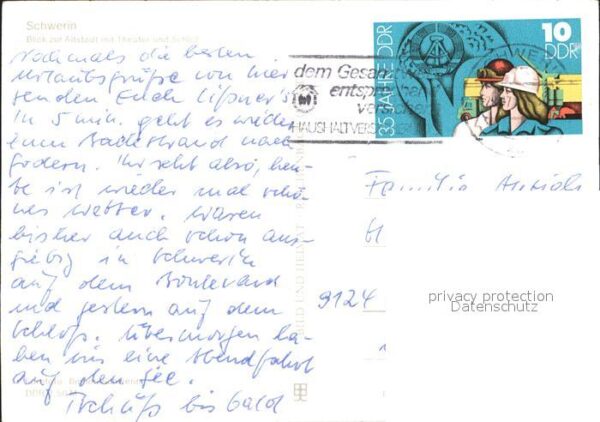 Schwerin
Blick zur Altstadt mit Theater und Schloß
Nochmals die besten
Urlaubsgrüße von hier
senden Euch
In 5 min. geht es wieder
zum Badestrand nach
Ihr seht also, heu-
te ist wieder mal schö-
nes Wetter. Waren
bisher auch schon aus-
giebig in Schwerin
auf dem Boulevard
und gestern auf dem
Schloß. Übermorgen ha-
ben wir eine Abendfahrt
auf dem See.
Tschüß bis bald
BILD UND HEIMAT
35 JAHRE DDR
10
DDR
dem Gesamt
HAUSHALTVERS
Familie
9124
privacy protection
Datenschutz